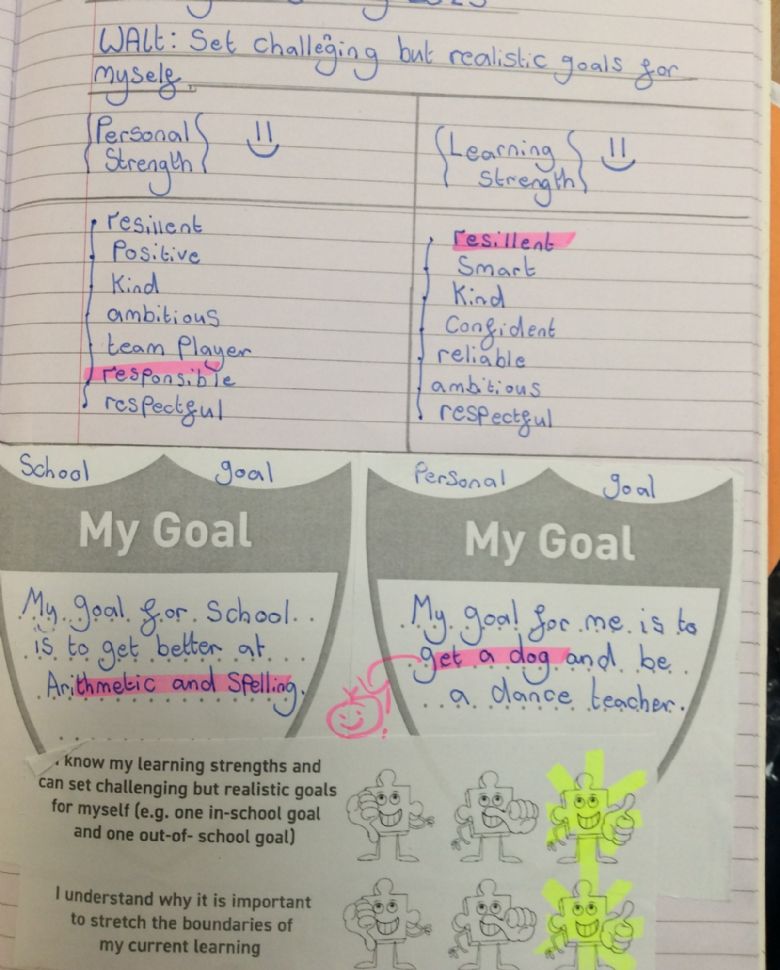 WALt: Set challeging but realistic goals for
myself.
Personal
Strength
Learning
Strength
resillent
Positive
Kind
ambitious
team Player
responsible
respectful
resillent
Smart
Kind
Confident
reliable
ambitious
respectful
School goal
My Goal
My goal for School
is to get better at
Arithmetic and Spelling.
Personal goal
My Goal
My goal for me is to
get a dog and be
a dance teacher.
know my learning strengths and
can set challenging but realistic goals
for myself (e.g. one in-school goal
and one out-of- school goal)
I understand why it is important
to stretch the boundaries of
my current learning